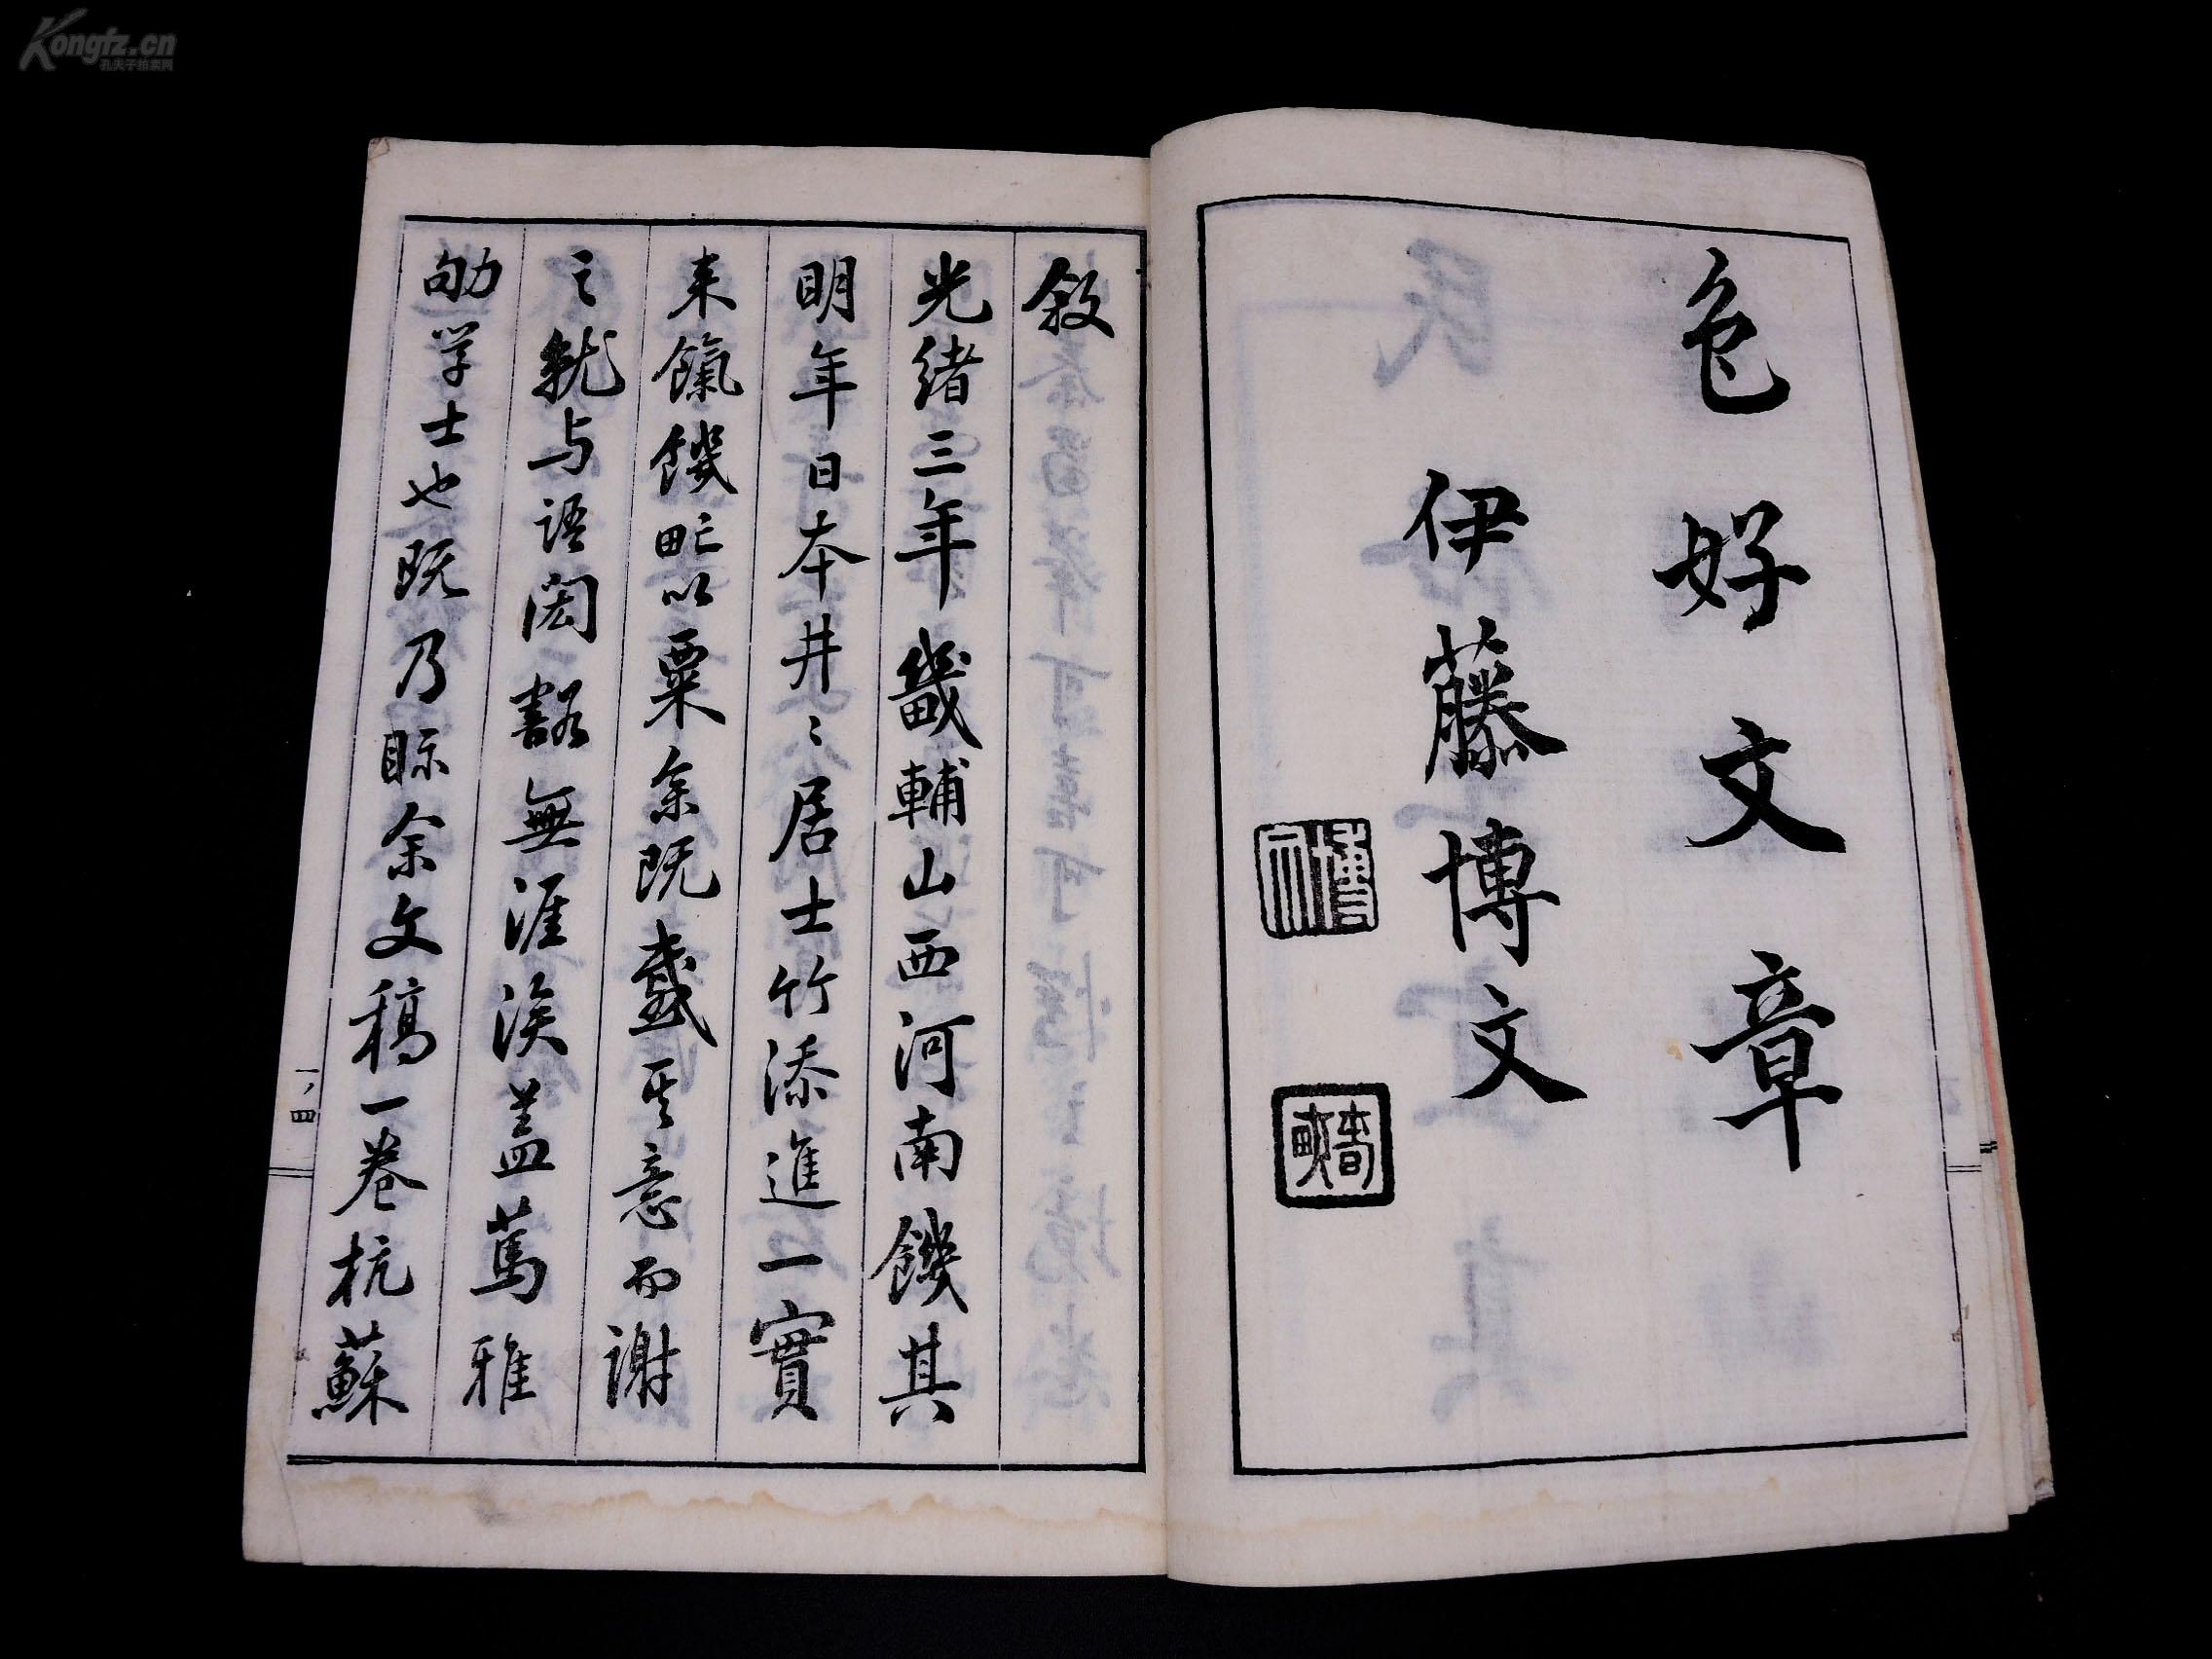 色好文章
伊藤博文
博文
敘
光緒三年畿輔山西河南饑其
明年日本井〻居士竹添進一實
来餼饑甿以粟余既感其意而謝
之就与語閎豁無涯涘盖篤雅
劬学士也既乃眎余文稿一卷杭蘇
一ノ四
Kongfz.cn
孔夫子拍卖网